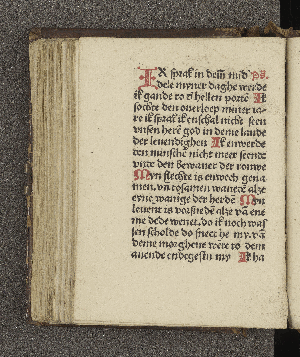 IK sprak in dem mid ps
dele myner daghe werde
ik gande to d hellen porte Ik
sochte den ouerloep miner ia-
re ik sprak ik enschal nicht seen
vnsen here god in deme lande
der leuendighen Ik enwerde
den nicht meer seende
vnde den bewaner der rouwe
Myn slechte is enwech gena
men vn tosamen alze
ene der herde Myn
leuent is vorsnede alze va ene
me wener do ik noch was
do sneet he my va
deme morghene wete to dem
auende endegestu my Ik ha